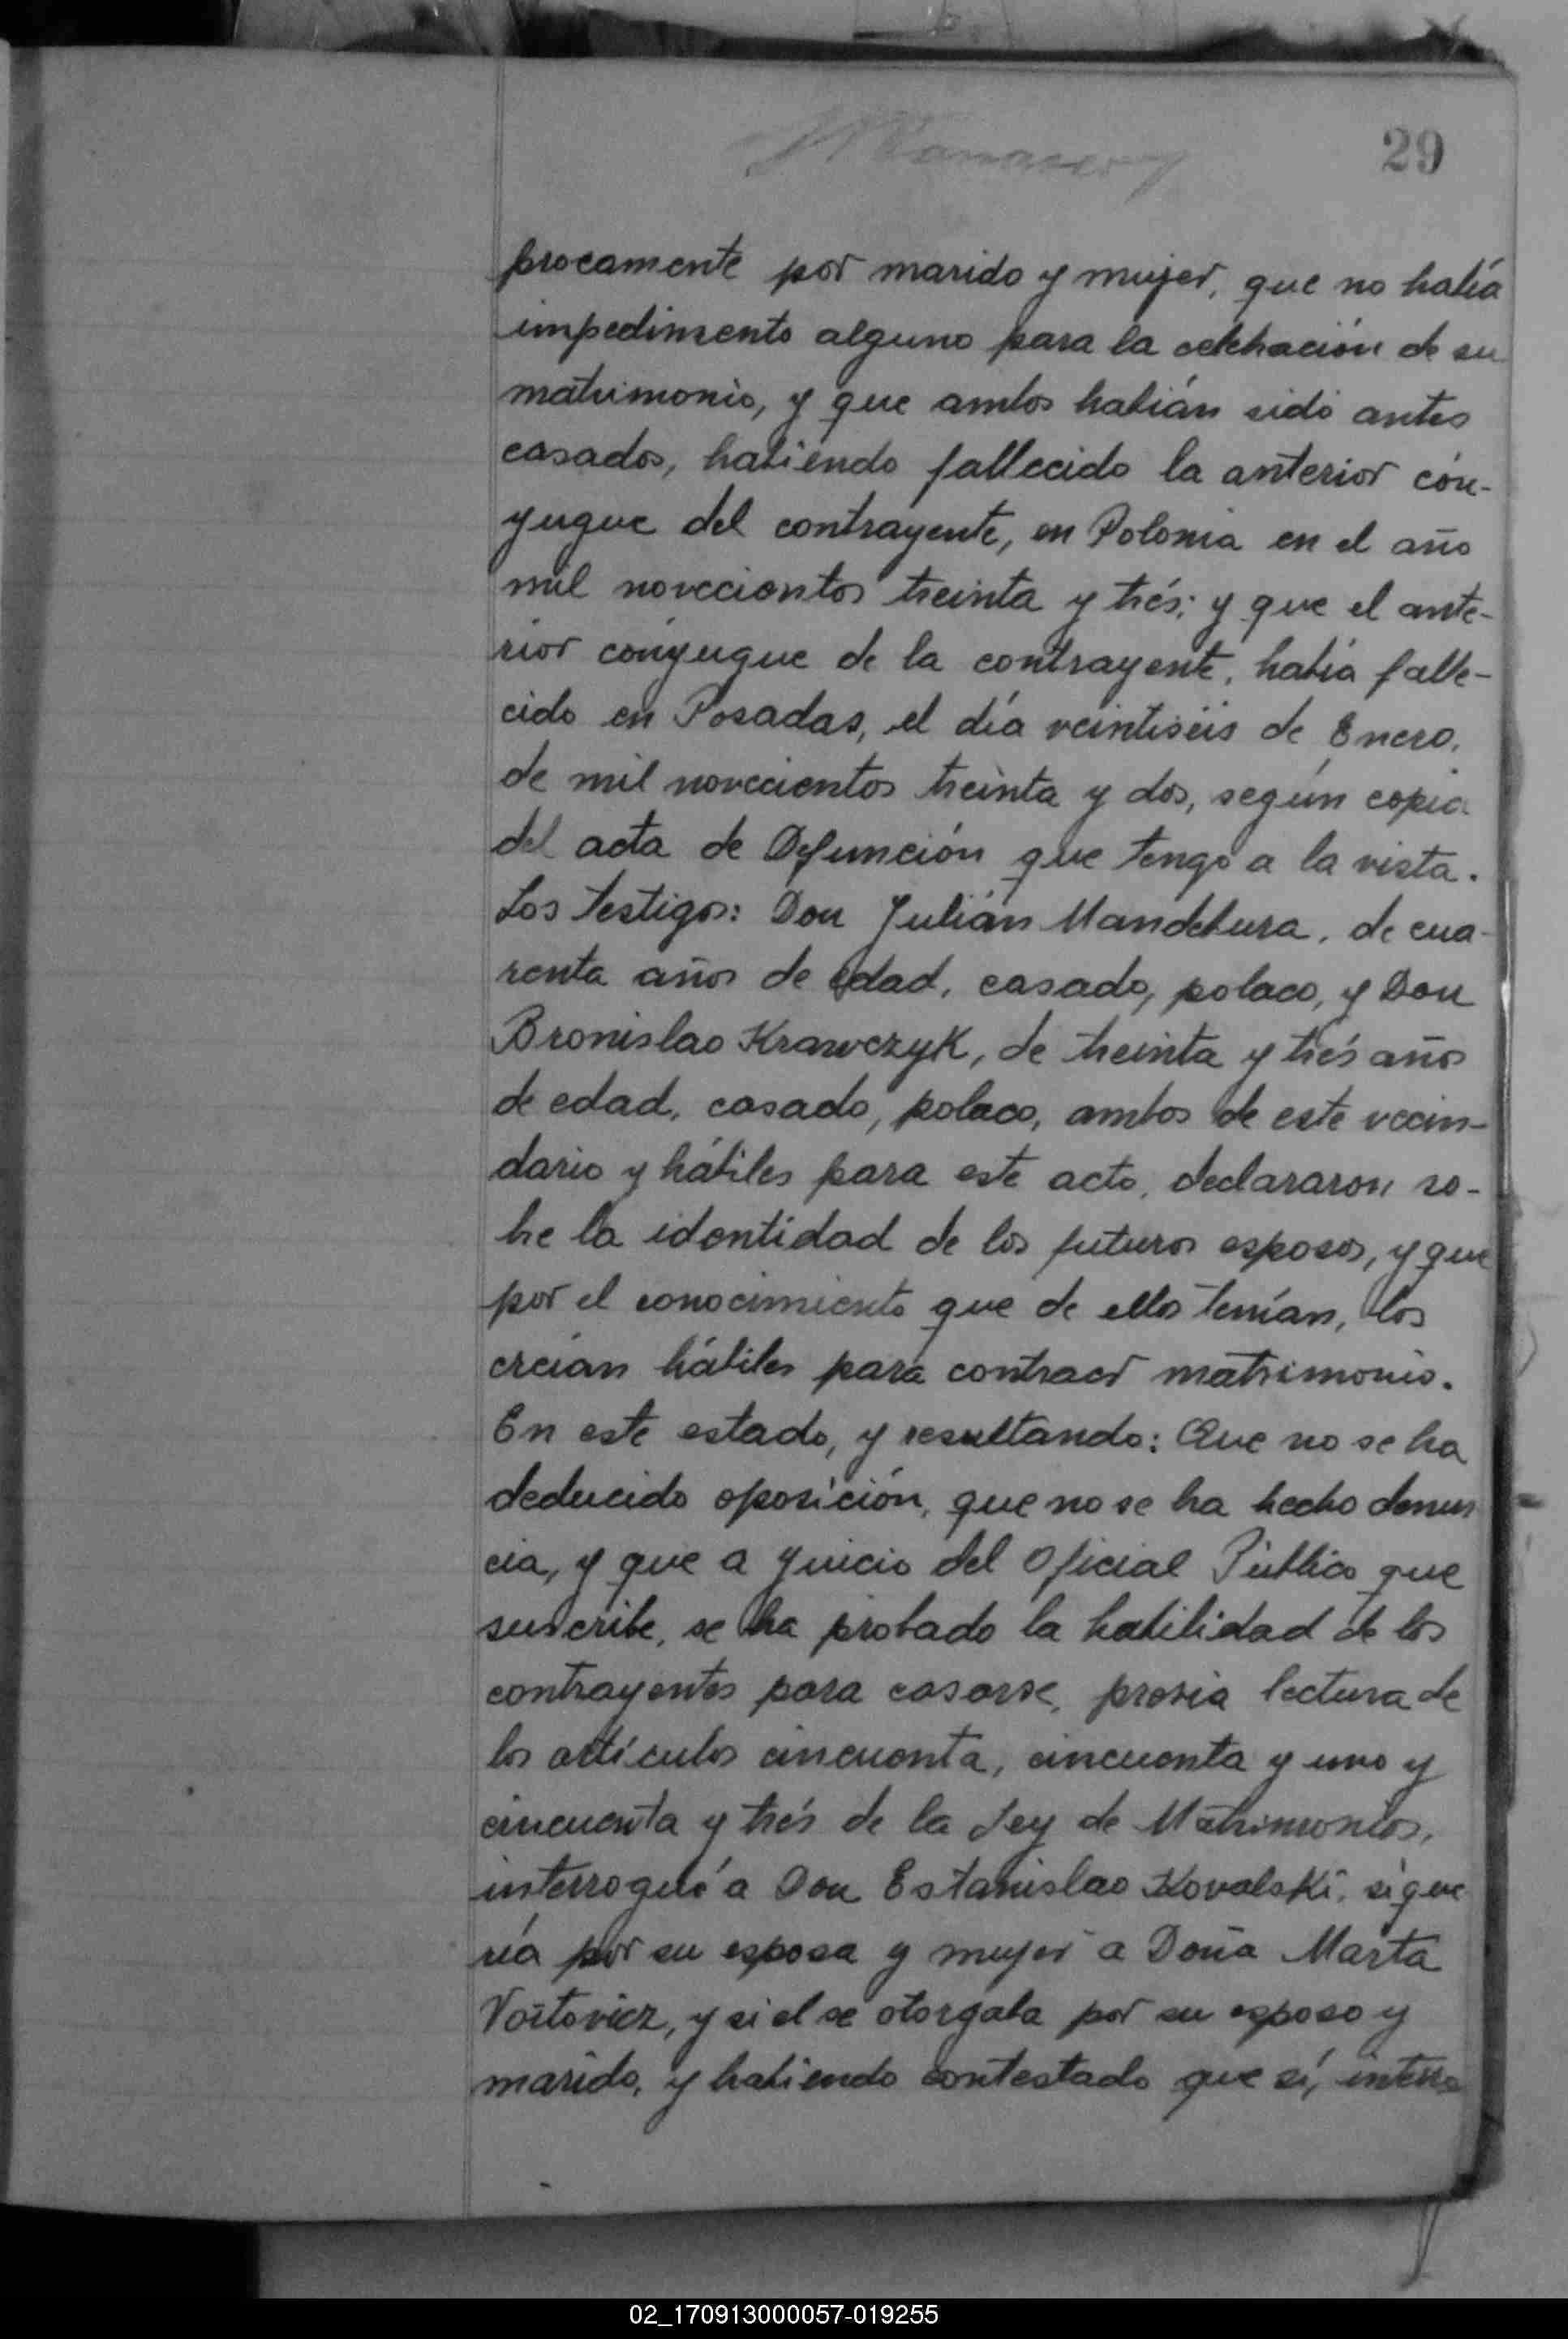 29
procamente por marido y mujer, que no había
impedimento alguno para la celebración de su
matrimonio, y que ambos habián sido antes
casados, habiendo fallecido la anterior cón-
yugue del contrayente, en Polonia en el año
mil novecientos treinta y trés; y que el ante-
rior cónyugue de la contrayente, había falle-
cido en Posadas, el día veintiséis de Enero,
de mil novecientos treinta y dos, según copia
del acta de Defunción que tengo a la vista.
Los testigos: Don Julián Mandebura, de cua-
renta años de edad, casado, polaco, y Don
Bronislao Krawczyk, de treinta y trés años
de edad, casado, polaco, ambos de este vecin-
dario y hábiles para este acto, declararon so-
bre la identidad de los futuros esposos, y que
por el conocimiento que de ellos tenían, los
creían hábiles para contraer matrimonio.
En este estado, y resultando: Que no se ha
deducido oposición, que no se ha hecho denun
cia, y que a juicio del Oficial Público que
suscribe, se ha probado la habilidad de los
contrayentes para casarse, previa lectura de
los artículos cincuenta, cincuenta y uno y
cincuenta y trés de la Ley de Matrimonios,
interrogué a Don Estanislao Kovalski, si que
ría por su esposa y mujer a Doña Marta
Voitovicz, y si el se otorgaba por su esposo y
marido, y habiendo contestado que sí, interro
02_170913000057-019255